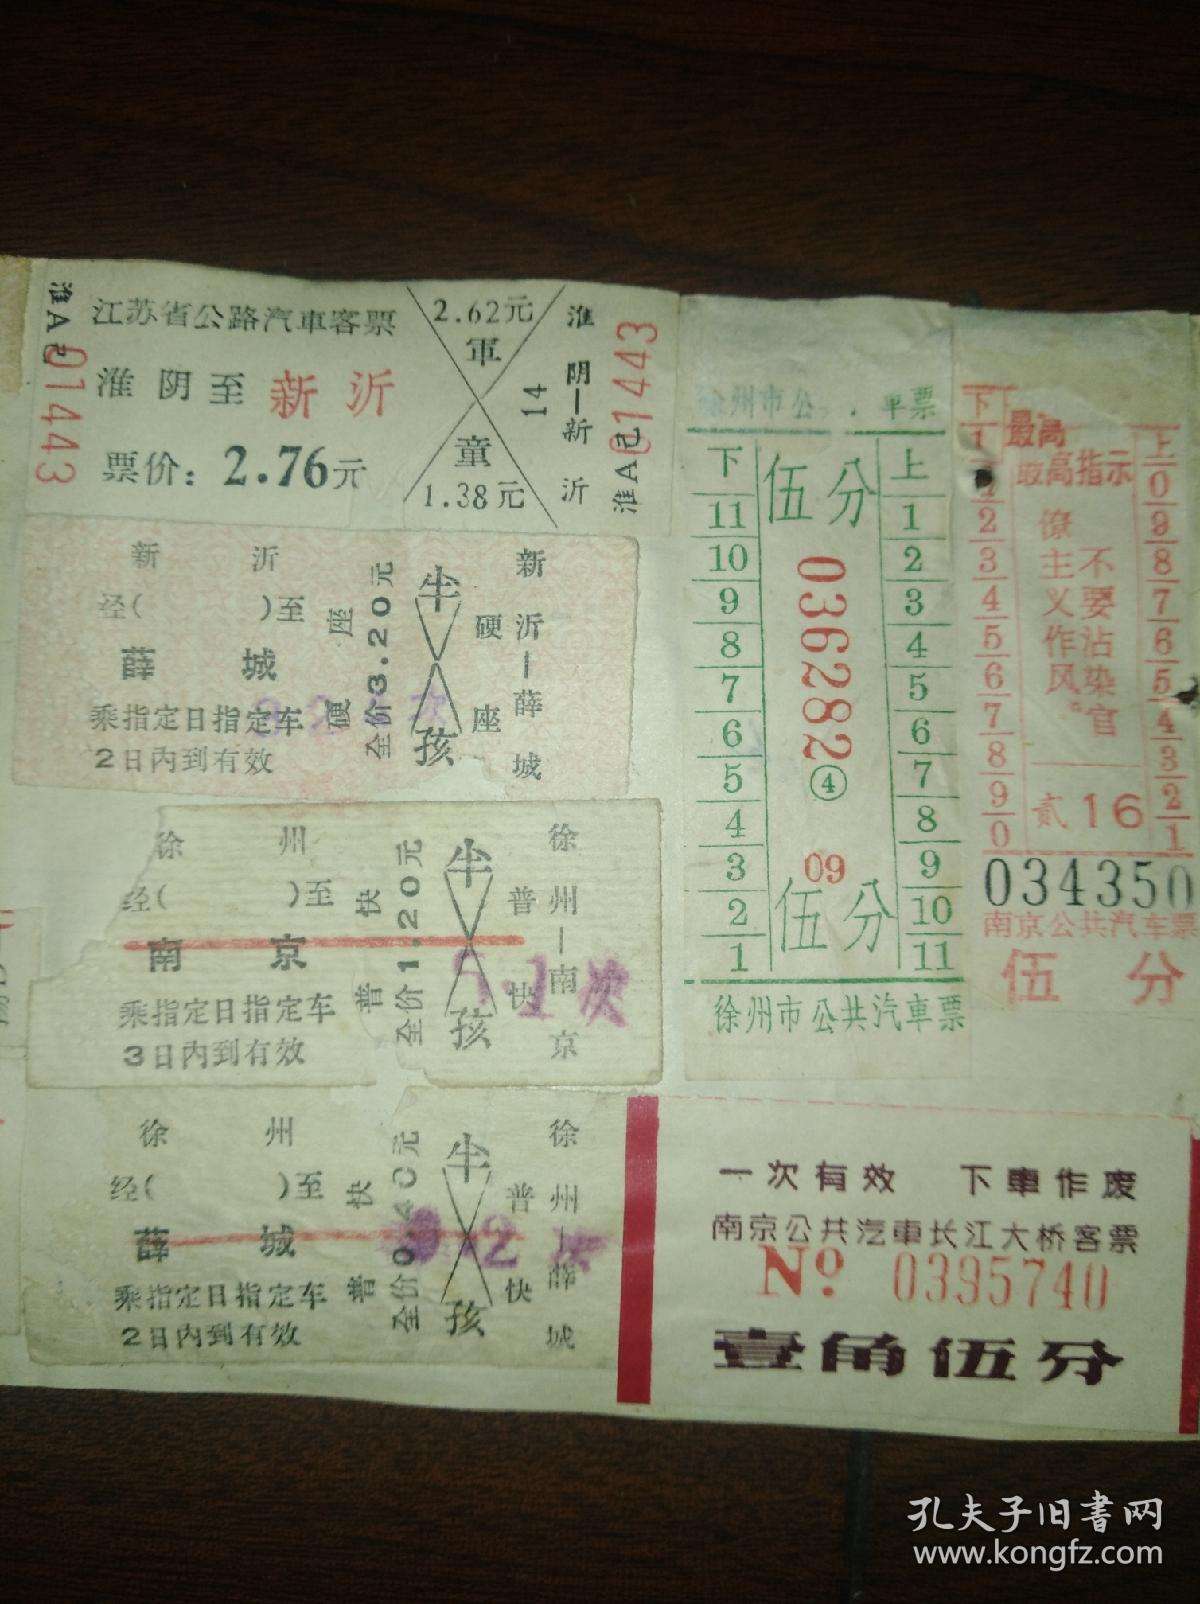 淮A己
01443
江苏省公路汽車客票
淮阴至新沂
票价：2.76元
2.62元
軍
童
1.38元
14
淮阴—新沂
淮A己
01443
新沂
经( )至
薛城
乘指定日指定车
2日内到有效
硬座
全价3.20元
半
孩
硬座
新沂—薛城
徐州
经( )至
南京
乘指定日指定车
3日内到有效
普快
全价1.20元
半
孩
普快
徐州—南京
徐州
经( )至
薛城
乘指定日指定车
2日内到有效
普快
全价0.40元
半
孩
普快
徐州—薛城
徐州市公 車票
下
11
10
9
8
7
6
5
4
3
2
1
伍分
0362822④
09
伍分
上
1
2
3
4
5
6
7
8
9
10
11
徐州市公共汽車票
下
1
2
3
4
5
6
7
8
9
0
最高
最高指示
不要沾染官
僚主义作风。
贰16
上
0
9
8
7
6
5
4
3
2
1
034350
南京公共汽车票
伍分
一次有效 下車作废
南京公共汽車长江大桥客票
No 0395740
壹角伍分
孔夫子旧书网
www.kongfz.com